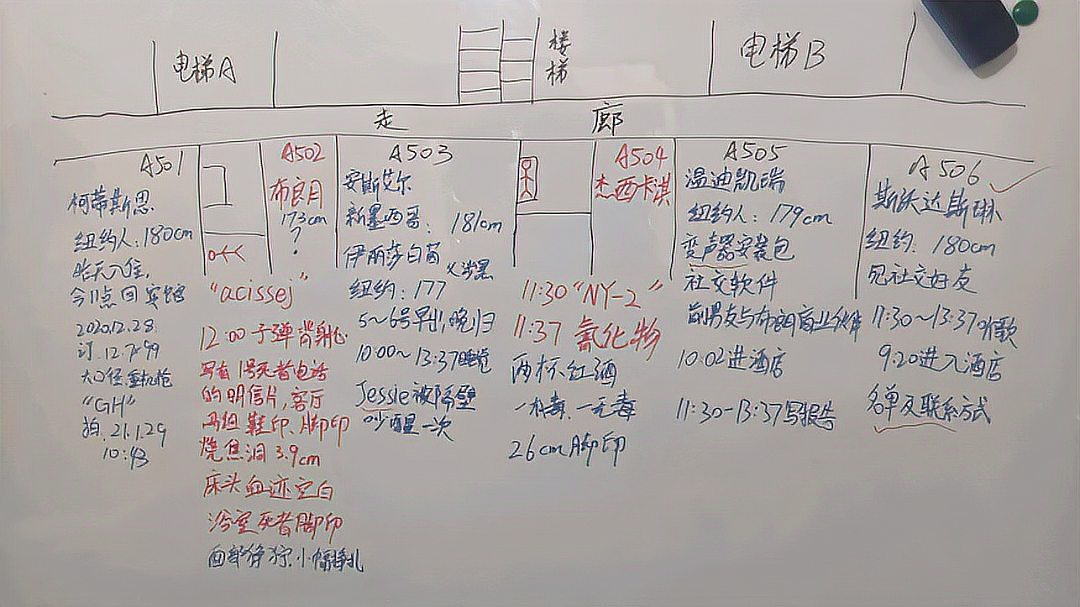 电梯A
楼梯
电梯B
走廊
A501
柯蒂斯恩
纽约人:180cm
昨天入住,
今11点回宾馆
2020.12.28
订.12.7*99
大口径重机枪
"GH"
拍.21.1.29
10:43
A502
布良月
173cm
?
"acissej"
12:00 子弹背射心
写有1号死者电话
的明信片,客厅
马桶鞋印、脚印
烧焦洞3.9cm
床头血迹空白
浴室死者脚印
面部狰狞.小幅挣扎
A503
安斯艾尔
新墨西哥:181cm
伊丽莎白茵
纽约:177
5~6号早出,晚归
10:00~13:37睡觉
Jessie被隔壁
吵醒一次
A504
杰西卡淇
11:30"NY-2"
11:37 氰化物
两杯红酒
一杯毒、一无毒
26cm脚印
A505
温迪凯瑞
纽约人:179cm
变声器安装包
社交软件
前男友与布朗商业伙伴
10:02进酒店
11:30-13:37写报告
A506
斯沃达斯琳
纽约:180cm
见社交好友
11:30~13:37听歌
9:20进入酒店
名单及联系方式